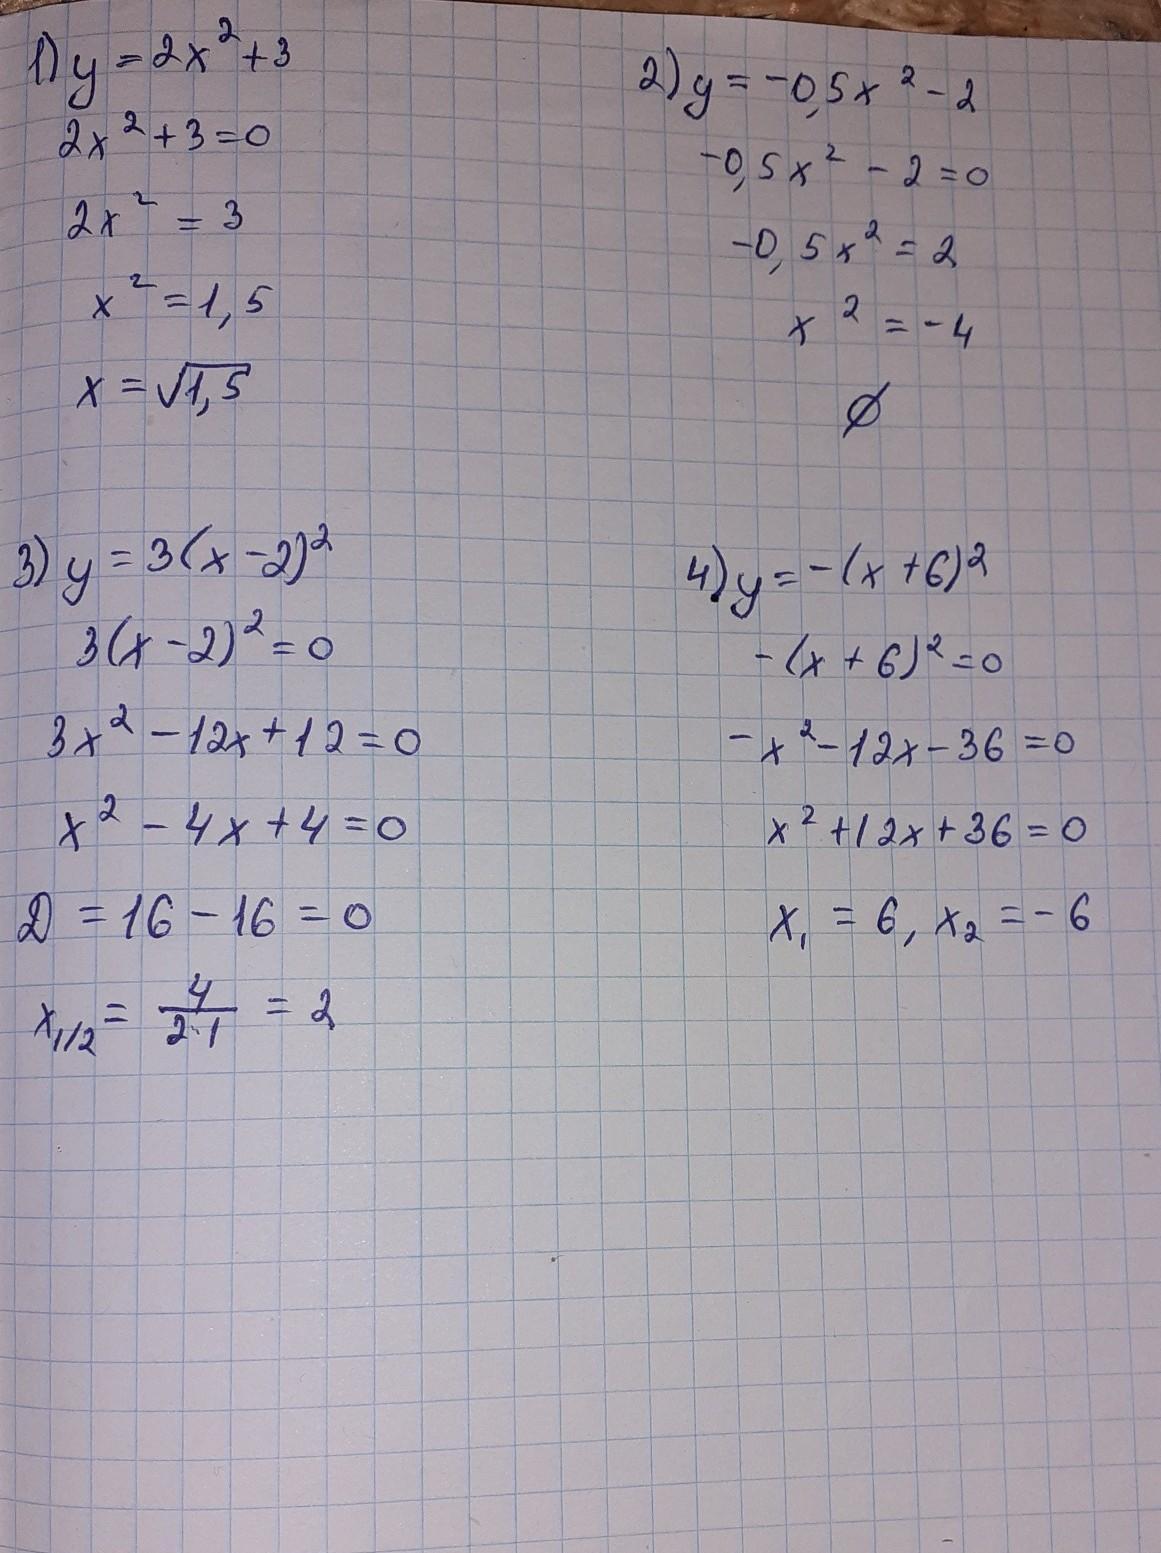 1) y = 2x² + 3
2x² + 3 = 0
2x² = 3
x² = 1,5
x = √1,5
2) y = -0,5x² - 2
-0,5x² - 2 = 0
-0,5x² = 2
x² = -4
∅
3) y = 3(x - 2)²
3(x - 2)² = 0
3x² - 12x + 12 = 0
x² - 4x + 4 = 0
D = 16 - 16 = 0
x₁/₂ = 4/(2·1) = 2
4) y = -(x + 6)²
-(x + 6)² = 0
-x² - 12x - 36 = 0
x² + 12x + 36 = 0
x₁ = 6, x₂ = -6